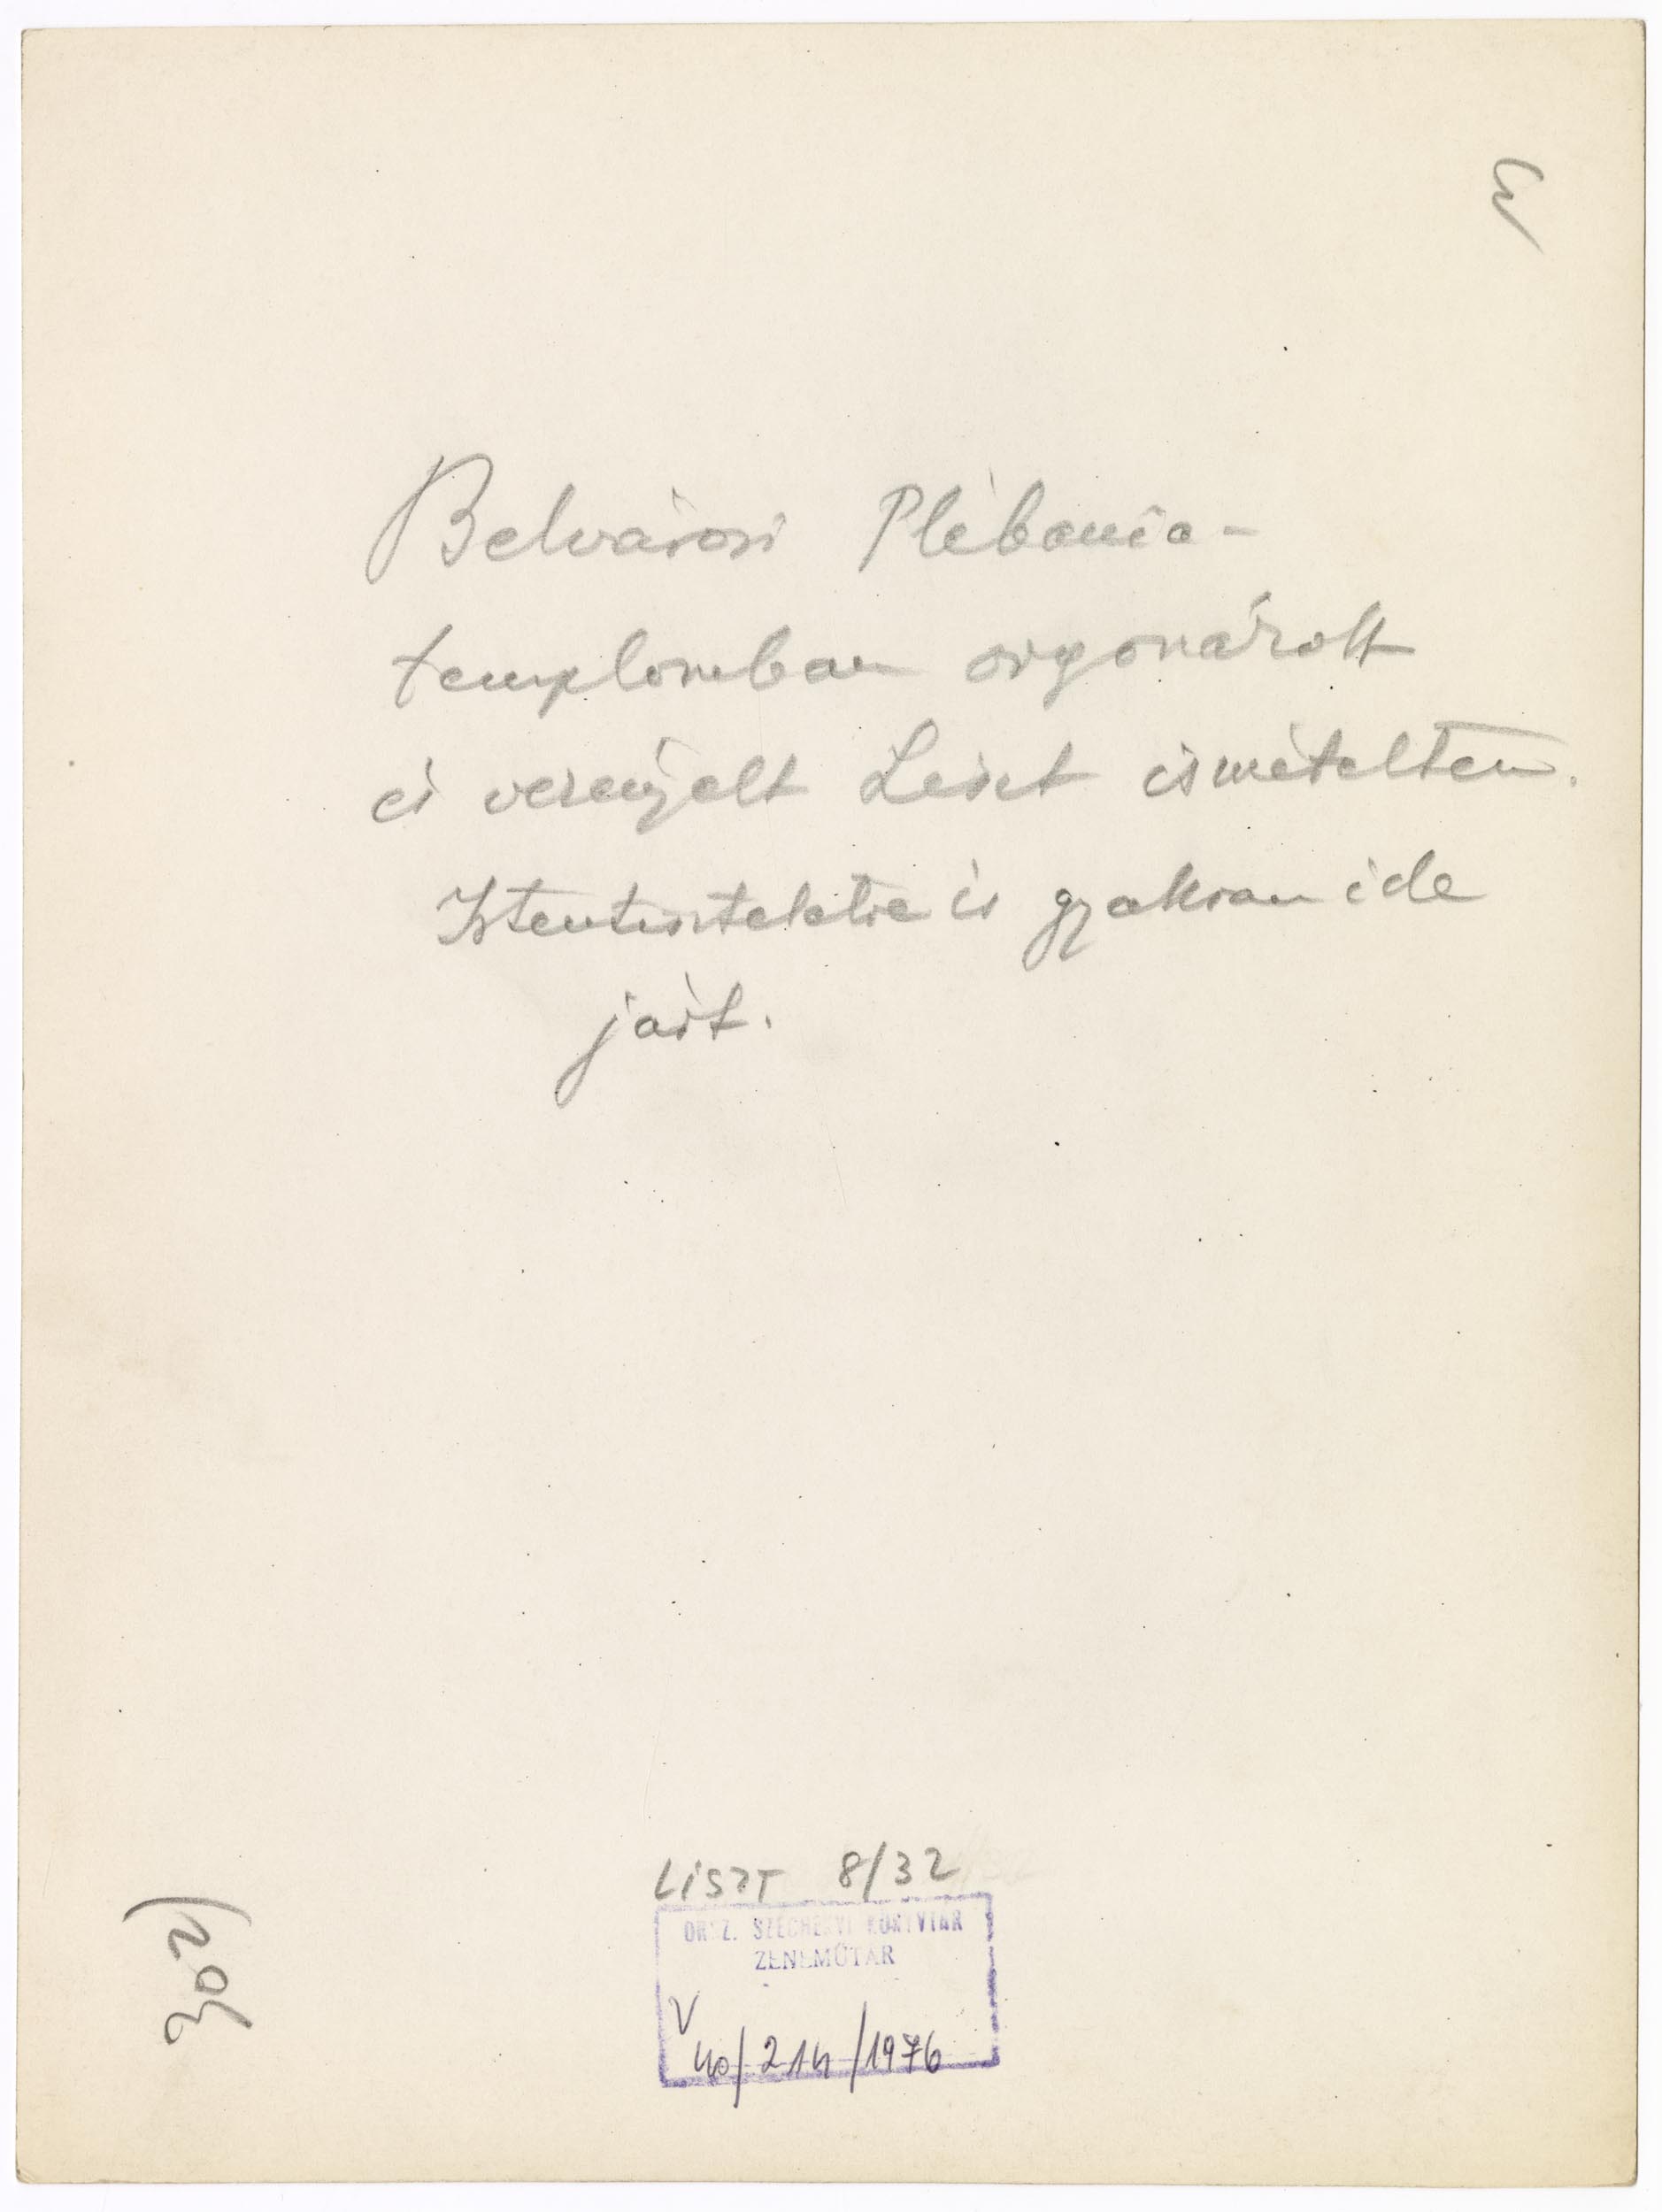 3
Belvárosi Plébánia-
templomban orgonázott
és vezényelt Liszt ismételten.
Istentiszteletre is gyakran ide
járt.
LISZT 8/32
ORSZ. SZÉCHÉNYI KÖNYVTÁR
ZENEMŰTÁR
V
40/214/1976
302)